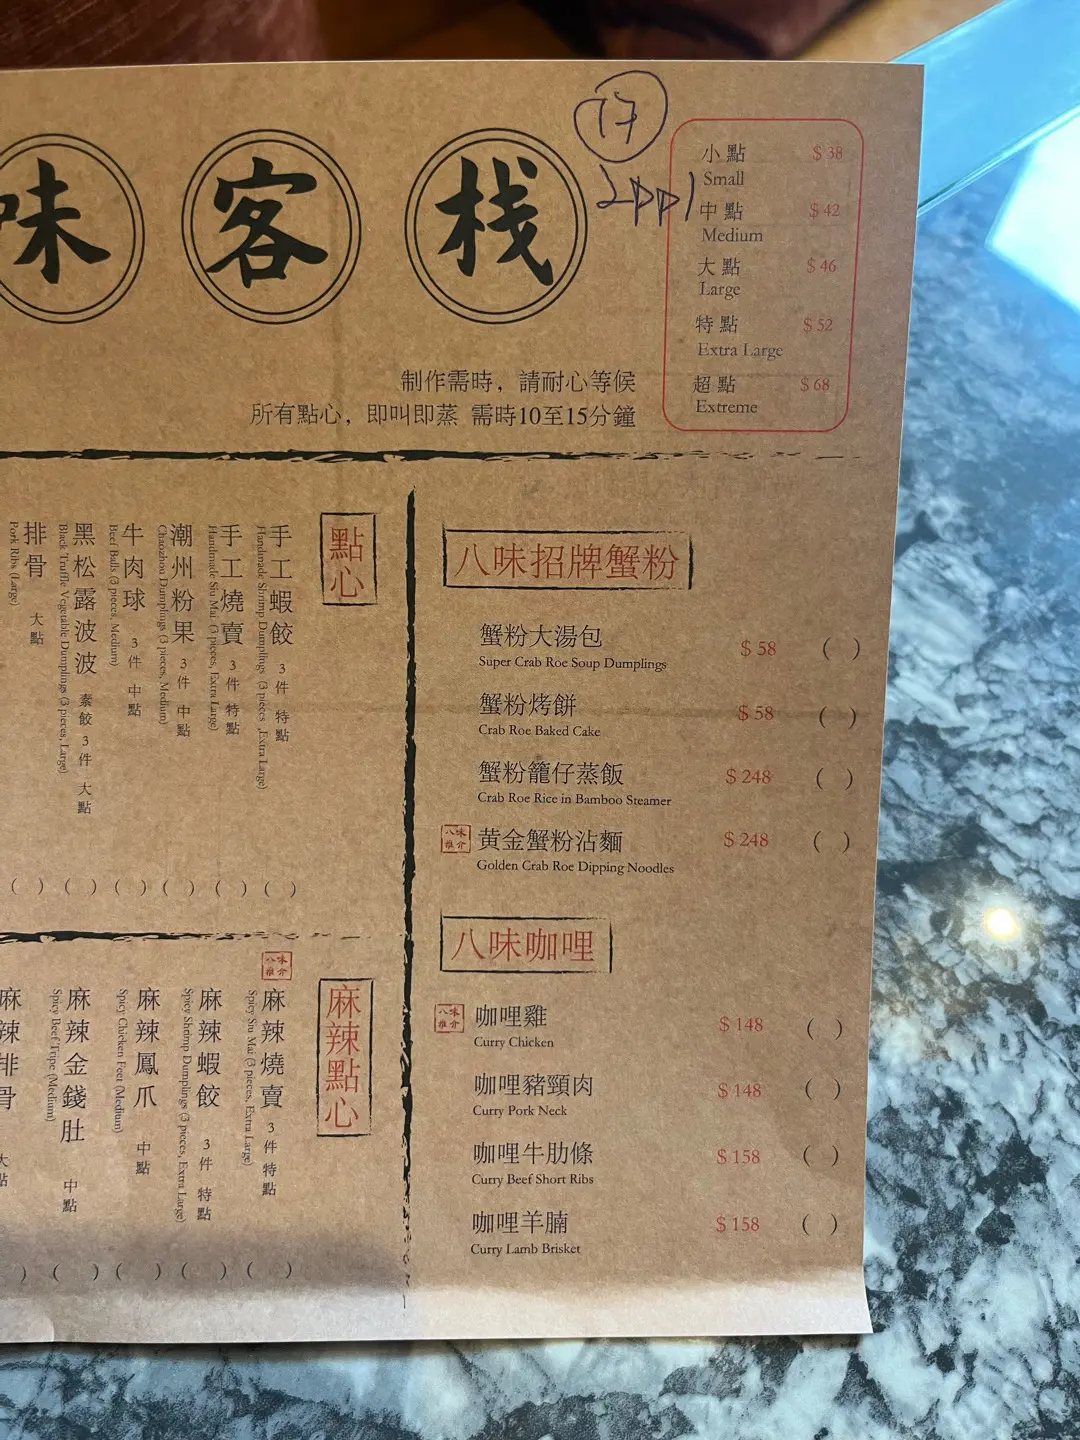 味 客 栈
17
2ppl
小點 $38
Small
中點 $42
Medium
大點 $46
Large
特點 $52
Extra Large
超點 $68
Extreme
制作需時，請耐心等候
所有點心，即叫即蒸 需時10至15分鐘
點心
手工蝦餃 3件 特點 ( )
Handmade Shrimp Dumplings (3 pieces ,Extra Large)
手工燒賣 3件 特點 ( )
Handmade Siu Mai (3 pieces, Extra Large)
潮州粉果 3件 中點 ( )
Chaozhou Dumplings (3 pieces, Medium)
牛肉球 3件 中點 ( )
Beef Balls (3 pieces, Medium)
黑松露波波 素餃 3件 大點 ( )
Black Truffle Vegetable Dumplings (3 pieces, Large)
排骨 大點 ( )
Pork Ribs (Large)
麻辣點心
八味推介
麻辣燒賣 3件 特點 ( )
Spicy Siu Mai (3 pieces, Extra Large)
麻辣蝦餃 3件 特點 ( )
Spicy Shrimp Dumplings (3 pieces, Extra Large)
麻辣鳳爪 中點 ( )
Spicy Chicken Feet (Medium)
麻辣金錢肚 中點 ( )
Spicy Beef Tripe (Medium)
麻辣排骨 大點 )
八味招牌蟹粉
蟹粉大湯包 $58 ( )
Super Crab Roe Soup Dumplings
蟹粉烤餅 $58 ( )
Crab Roe Baked Cake
蟹粉籠仔蒸飯 $248 ( )
Crab Roe Rice in Bamboo Steamer
八味推介
黄金蟹粉沾麵 $248 ( )
Golden Crab Roe Dipping Noodles
八味咖哩
八味推介
咖哩雞 $148 ( )
Curry Chicken
咖哩豬頸肉 $148 ( )
Curry Pork Neck
咖哩牛肋條 $158 ( )
Curry Beef Short Ribs
咖哩羊腩 $158 ( )
Curry Lamb Brisket